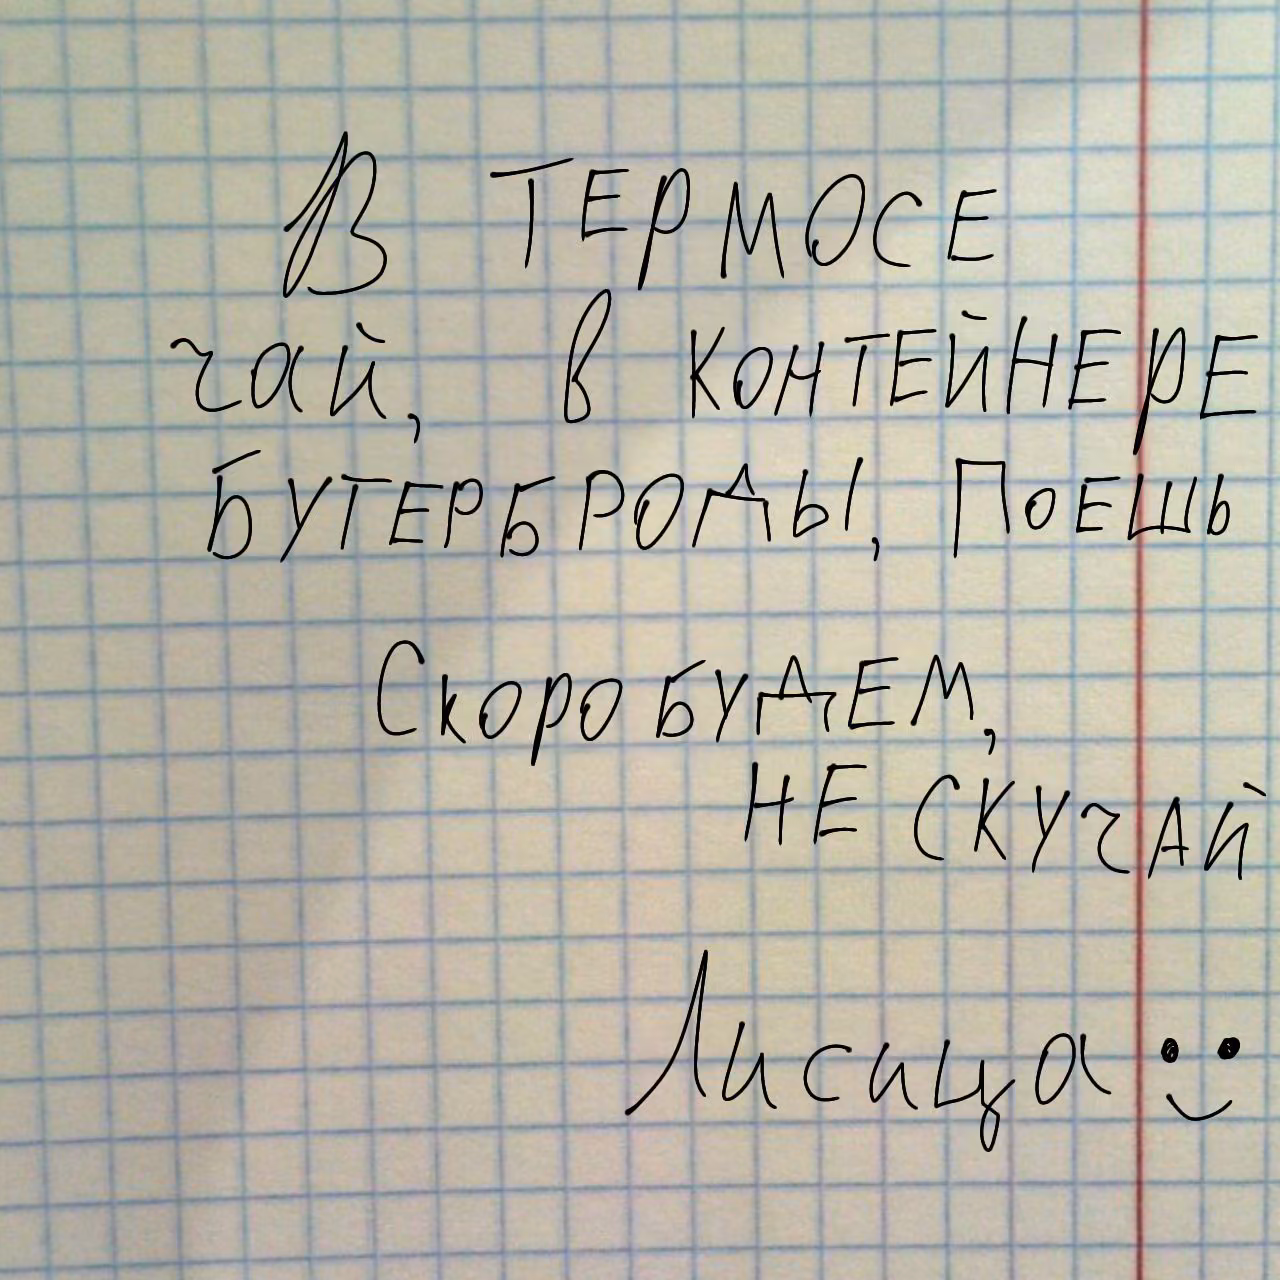 В ТЕРМОСЕ
чай, в КОНТЕЙНЕРЕ
БУТЕРБРОДЫ, ПОЕШЬ
Скоро БУДЕМ,
НЕ СКУЧАЙ
Лисица